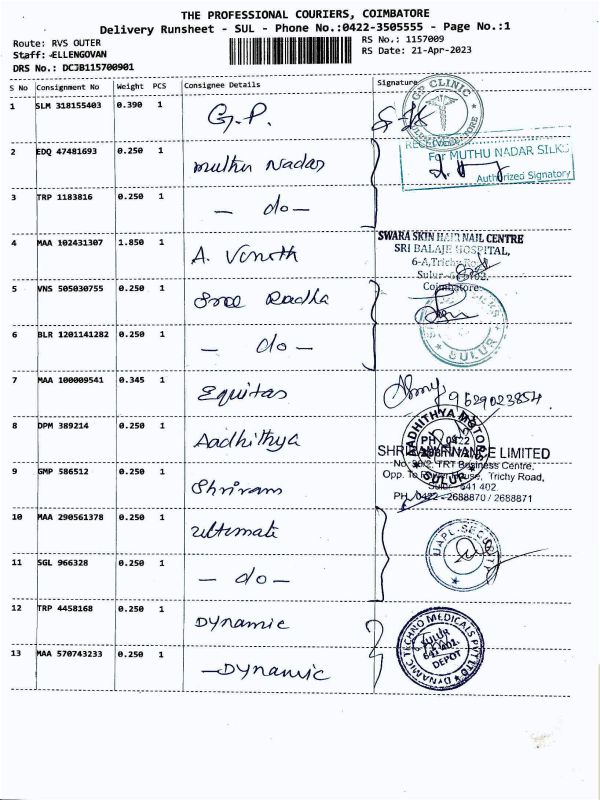 THE PROFESSIONAL COURIERS, COIMBATORE
Delivery Runsheet - SUL - Phone No.:0422-3505555 - Page No.:1
Route: RVS OUTER
RS No.: 1157009
Staff: ELLENGOVAN
RS Date: 21-Apr-2023
DRS No.: DCJB115700901
S No Consignment No Weight PCS Consignee Details Signature
1 SLM 318155403 0.390 1 G.P.
CLINIC
2 EDQ 47481693 0.250 1 Muthu Nadar
For MUTHU NADAR SILKS
Authorized Signatory
3 TRP 1183816 0.250 1 — do —
4 MAA 102431307 1.850 1 A. Vinoth
SWARA SKIN HAIR NAIL CENTRE
SRI BALAJE HOSPITAL,
6-A, Trichy Road
Sulur
Coimbatore
5 VNS 505030755 0.250 1 Sree Radha
6 BLR 1201141282 0.250 1 — do —
SULUR
7 MAA 100009541 0.345 1 Equitas
9629023854
8 DPM 389214 0.250 1 Aadhithya
AADHITHYA MOTORS
PH: 0422
SULUR
9 GMP 586512 0.250 1 Shriram
SHRIRAM FINANCE LIMITED
TRT Business Centre,
Opp. To Power House, Trichy Road,
Sulur - 641 402.
PH: 0422 - 2688870 / 2688871
10 MAA 290561378 0.250 1 ultimate
11 SGL 966328 0.250 1 — do —
UAPL-SECURITY
12 TRP 4458168 0.250 1 Dynamic
13 MAA 570743233 0.250 1 — Dynamic
DYNAMIC TECHNO MEDICALS PVT LTD
SULUR
641 402.
DEPOT